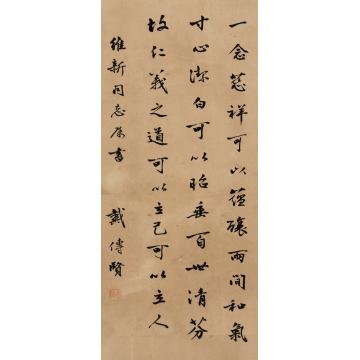 一念慈祥可以醞釀兩間和氣
寸心潔白可以昭垂百世清芬
故仁義之道可以立己可以立人
維新同志屬書
戴傳賢